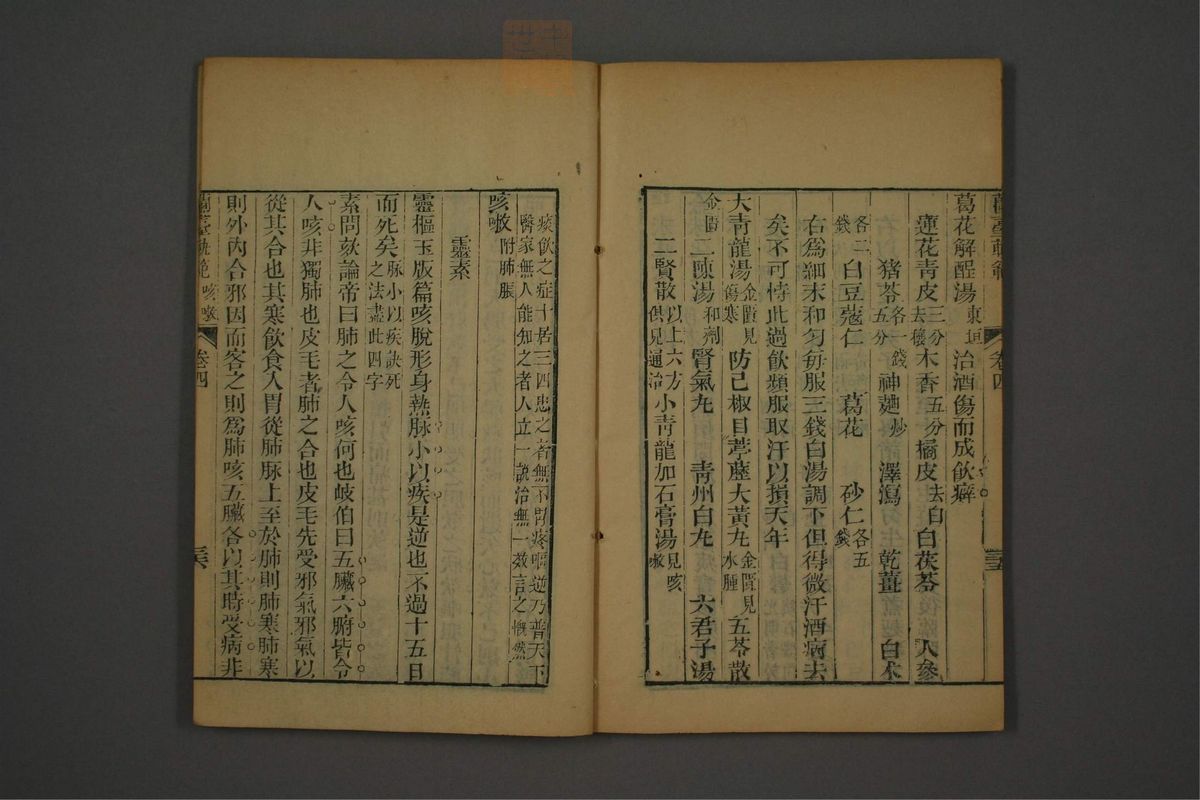 蘭臺軌範 卷四 三五
葛花解酲湯東垣 治酒傷而成飲癖
蓮花青皮三分去穰 木香五分 橘皮去白 白茯苓 人參
猪苓各一錢五分 神麯炒 澤瀉 乾薑 白朮
各二錢 白豆蔻仁 葛花 砂仁各五錢
右爲細末和匀毎服三錢白湯調下但得微汗酒病去
矣不可恃此過飲頻服取汗以損天年
大青龍湯金匱見傷寒 防己椒目葶藶大黃丸金匱見水腫 五苓散
金匱 二陳湯和劑 腎氣丸 青州白丸 六君子湯
二賢散以上六方俱見通治 小青龍加石膏湯見咳嗽
痰飲之症十居三四患之者無不胃疼嘔逆乃普天下
醫家無人能知之者人立一說治無一效言之慨然
咳嗽附肺脹
靈素
靈樞玉版篇咳脫形身熱脉小以疾是逆也不過十五日
而死矣脉小以疾訣死之法盡此四字
素問欬論帝曰肺之令人咳何也岐伯曰五臟六腑皆令
人咳非獨肺也皮毛者肺之合也皮毛先受邪氣邪氣以
從其合也其寒飲食入胃從肺脉上至於肺則肺寒肺寒
則外內合邪因而客之則爲肺咳五臟各以其時受病非
蘭臺軌範 咳嗽 卷四 三六